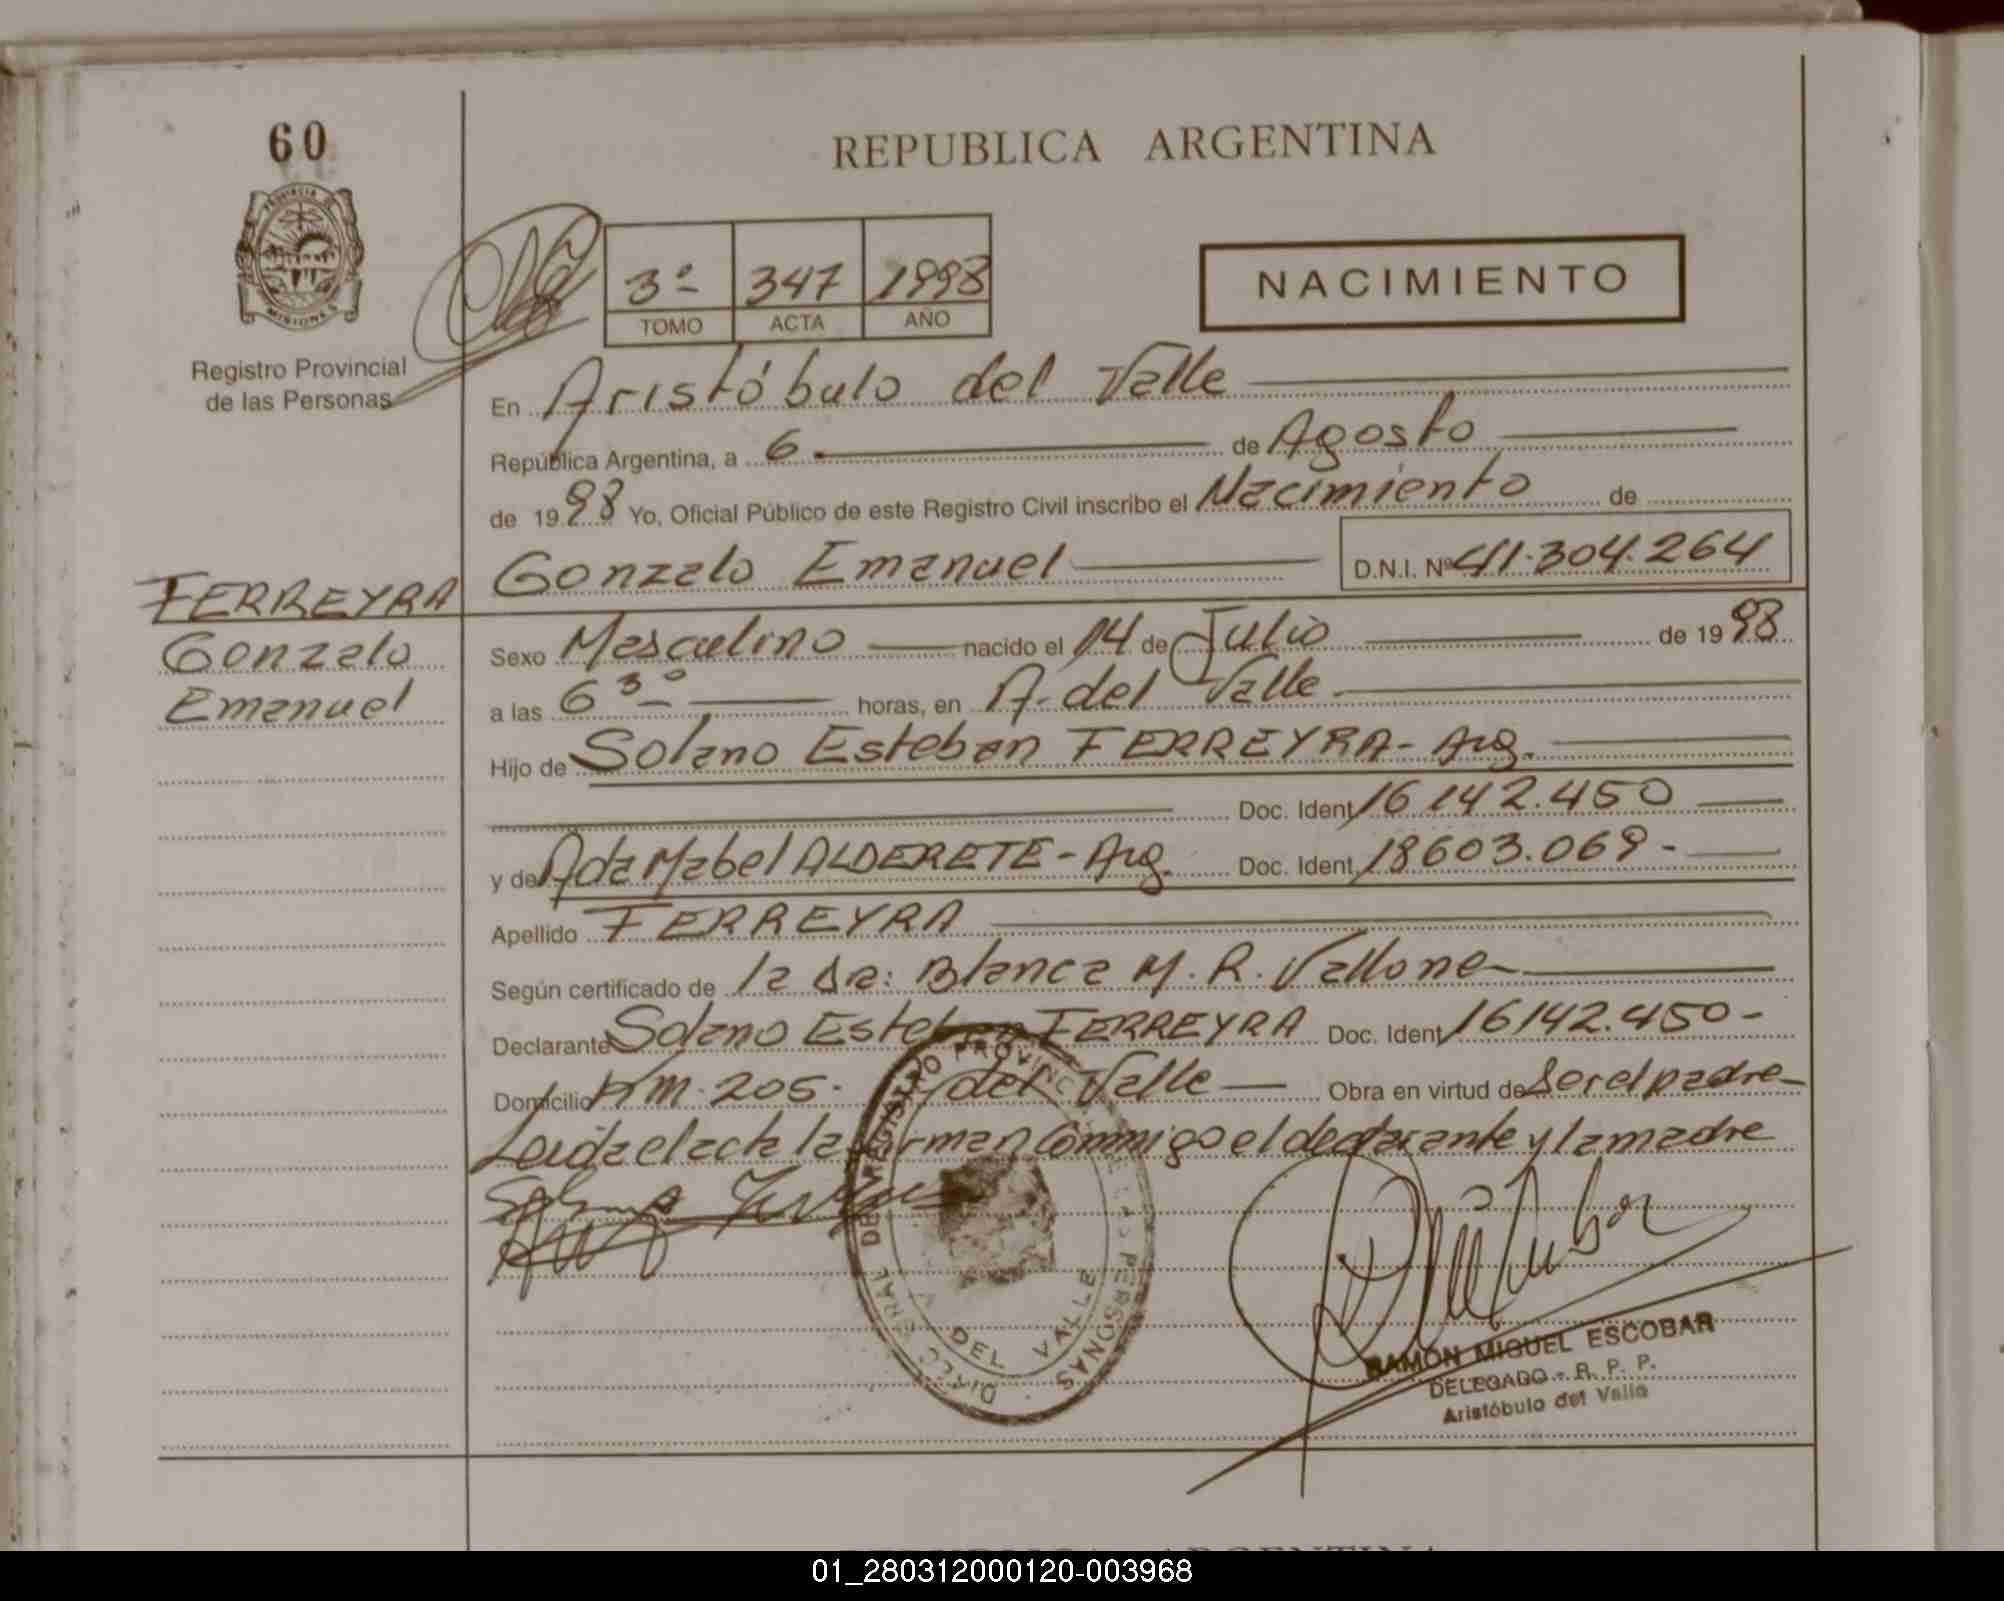 60
REPUBLICA ARGENTINA
PROVINCIA DE
MISIONES
Registro Provincial
de las Personas
3º 347 1998
TOMO ACTA AÑO
NACIMIENTO
En Aristóbulo del Valle
República Argentina, a 6 de Agosto
de 1998 Yo, Oficial Público de este Registro Civil inscribo el Nacimiento de
Gonzalo Emanuel D.N.I. Nº 41.304.264
FERREYRA
Gonzalo
Emanuel
Sexo Masculino nacido el 14 de Julio de 1998
a las 6 30 horas, en A. del Valle
Hijo de Solano Esteban FERREYRA - Arg.
Doc. Ident. 16142.450
y de Ada Mabel ALDERETE - Arg. Doc. Ident. 18603.069 -
Apellido FERREYRA
Según certificado de la Dra: Blanca M. R. Vallone
Declarante Solano Esteban FERREYRA Doc. Ident. 16142.450 -
Domicilio Km. 205 - del Valle Obra en virtud de Ser el padre
Leida el acta la firman Conmigo el declarante y la madre
DIREC. GRAL. DEL REGISTRO PROVINCIAL DE LAS PERSONAS
DEL VALLE
RAMON MIGUEL ESCOBAR
DELEGADO - R. P. P.
Aristóbulo del Valle
REPUBLICA ARGENTINA
01_280312000120-003968